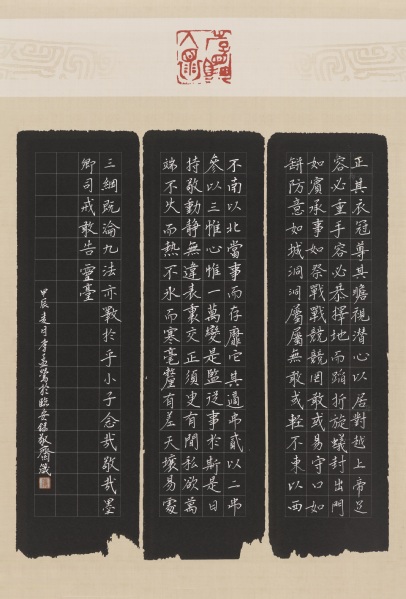 正其衣冠尊其瞻視潛心以居對越上帝足
容必重手容必恭擇地而蹈折旋蟻封出門
如賓承事如祭戰戰兢兢罔敢或易守口如
缾防意如城洞洞屬屬無敢或輕不東以西
不南以北當事而存靡它其適弗貳以二弗
參以三惟心惟一萬變是監從事於斯是曰
持敬動靜無違表裏交正須臾有間私欲萬
端不火而熱不冰而寒毫釐有差天壤易處
三綱既淪九法亦斁於乎小子念哉敬哉墨
卿司戒敢告靈臺
甲辰月李孟於臨安敬齋識